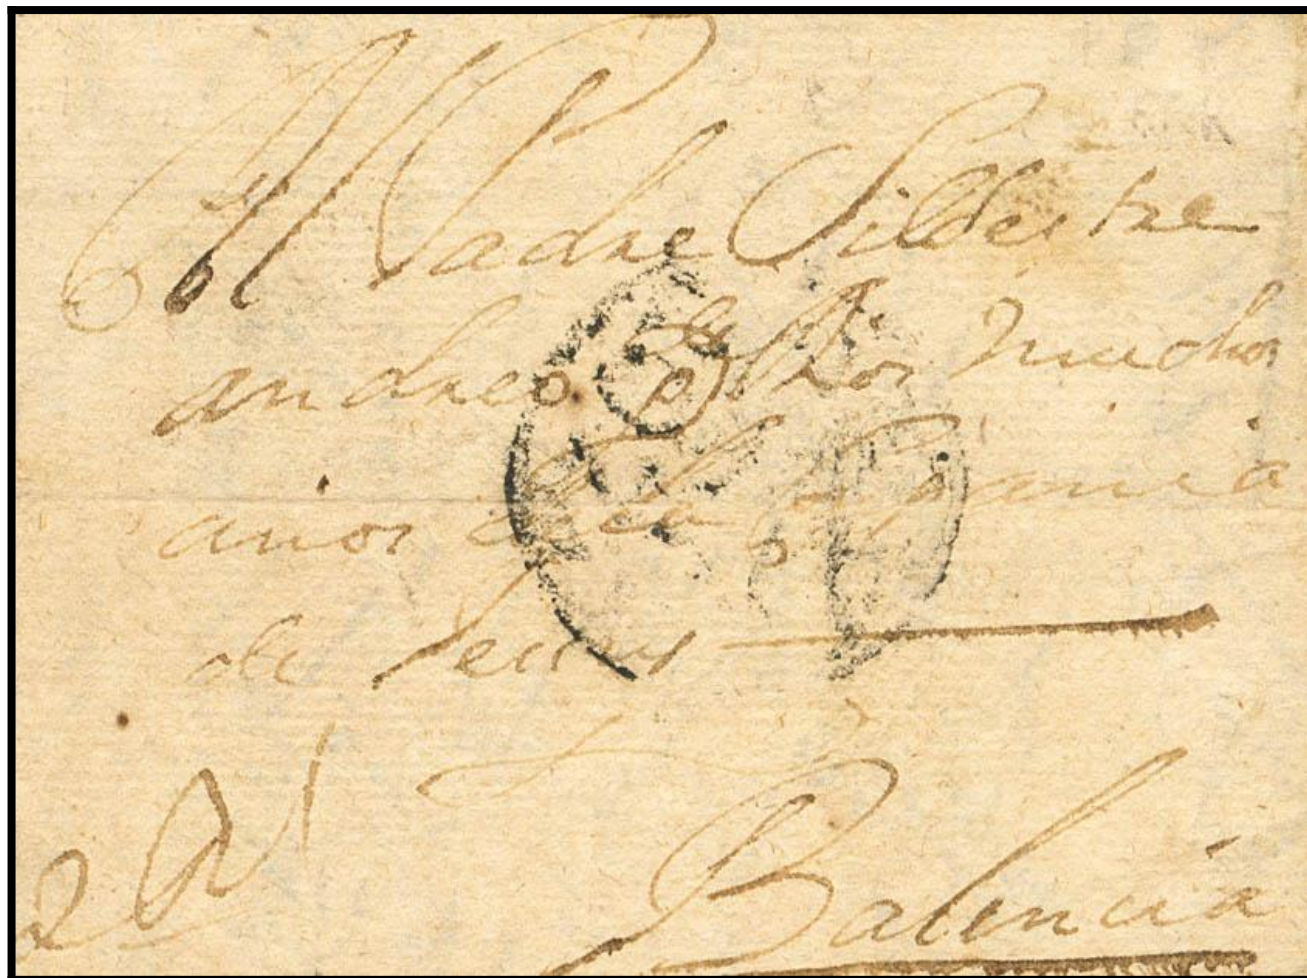 Al Padre Silbestre
andreo gde Dios muchos
anos de la Compania
de Jesus
Balencia